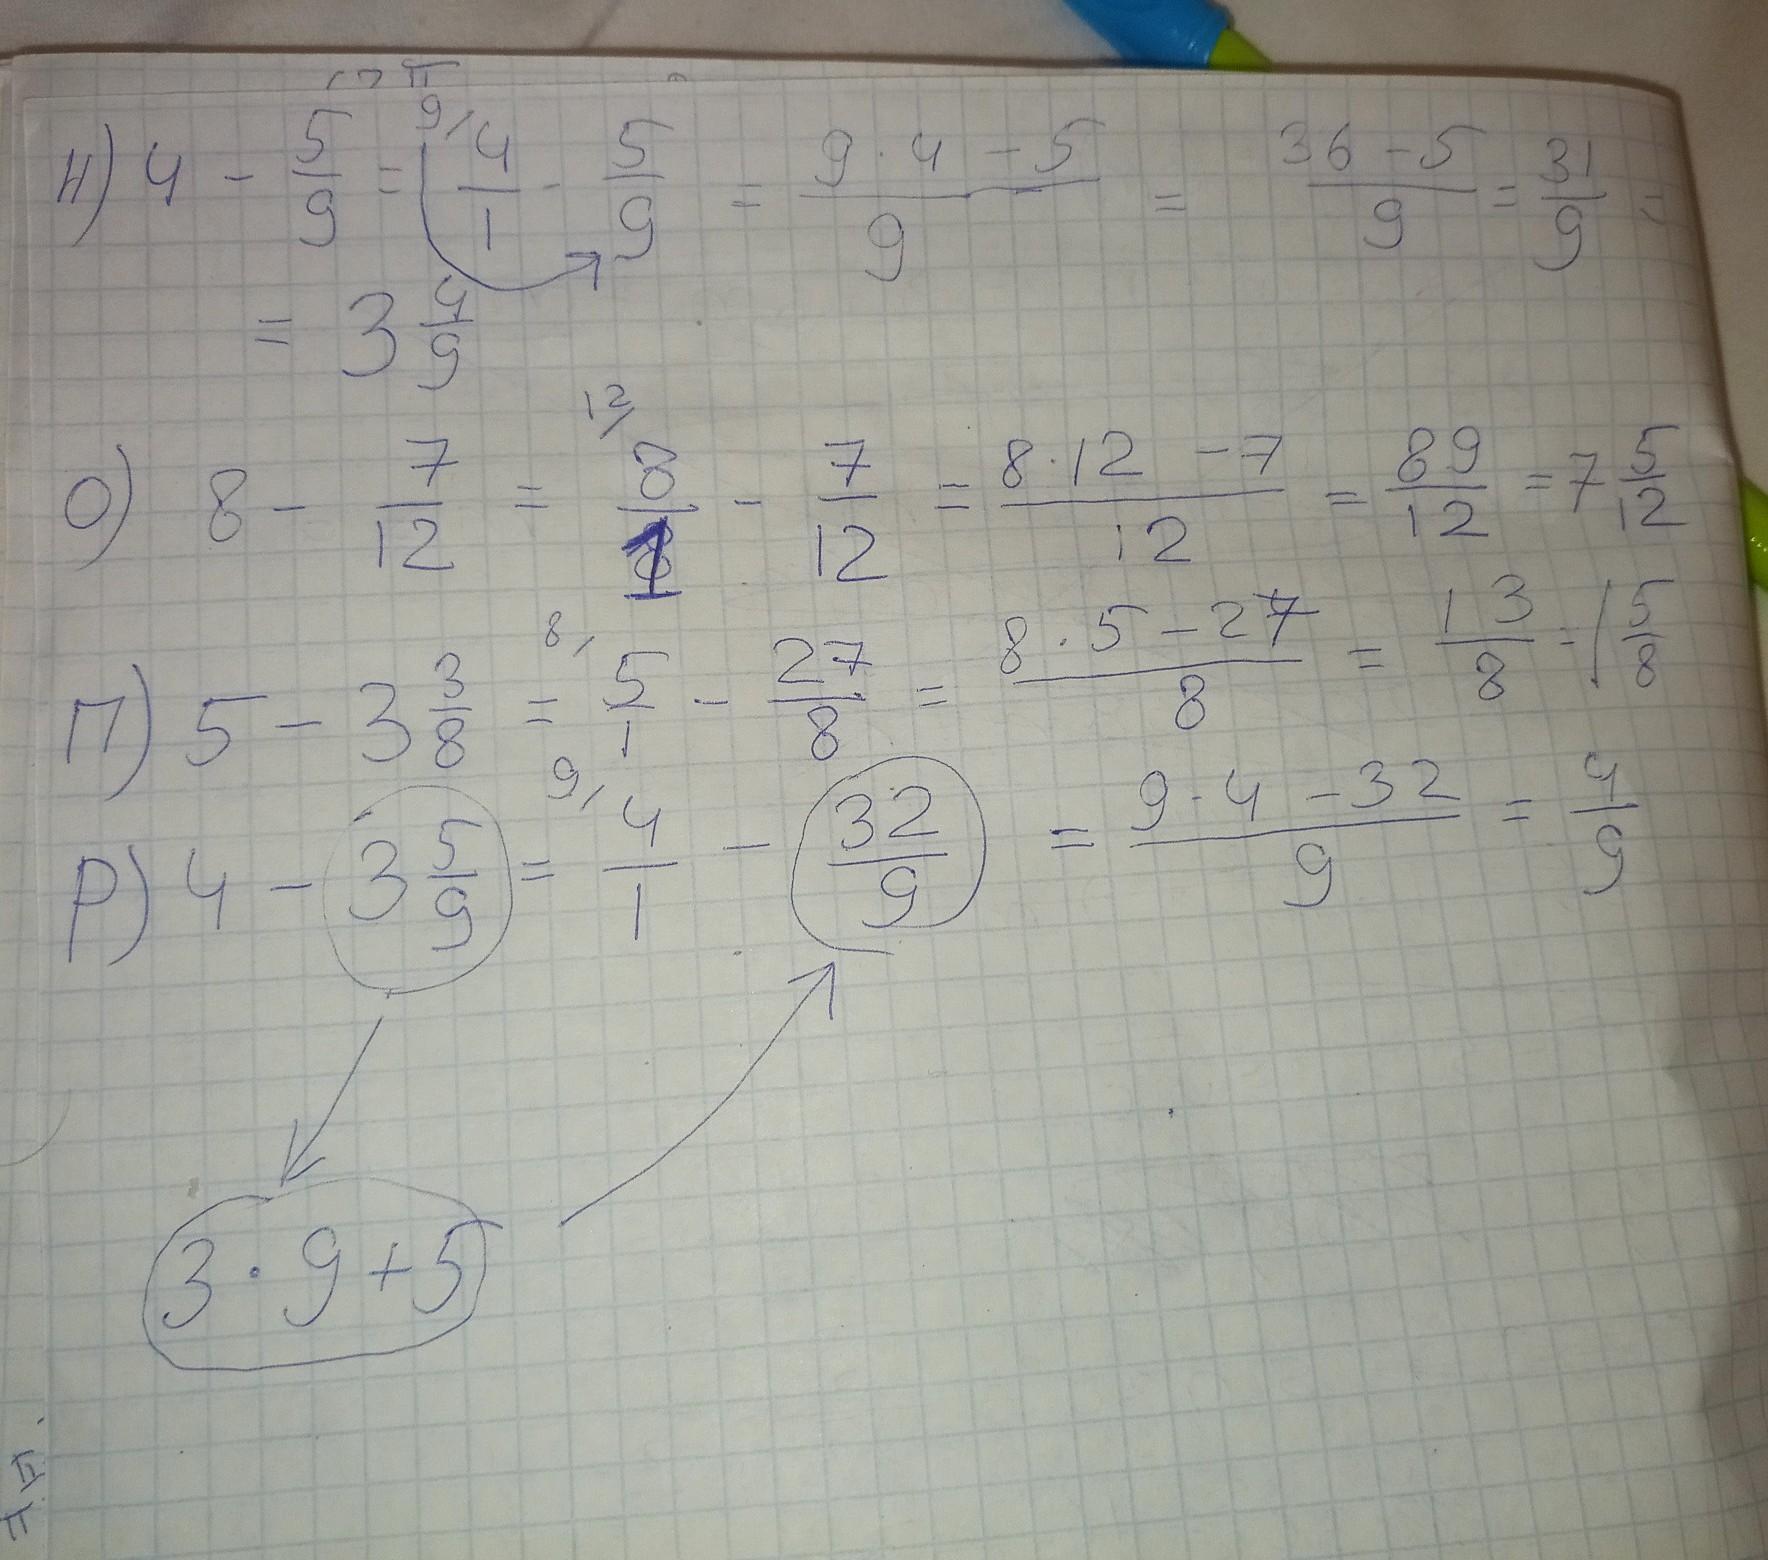 н) 4 - 5/9 = 9/ 4/1 - 5/9 = (9·4 - 5)/9 = (36 - 5)/9 = 31/9 =
= 3 4/9
О) 8 - 7/12 = 12/ 8/1 - 7/12 = (8·12 - 7)/12 = 89/12 = 7 5/12
П) 5 - 3 3/8 = 8/ 5/1 - 27/8 = (8·5 - 27)/8 = 13/8 = 1 5/8
Р) 4 - 3 5/9 = 9/ 4/1 - 32/9 = (9·4 - 32)/9 = 4/9
3·9+5